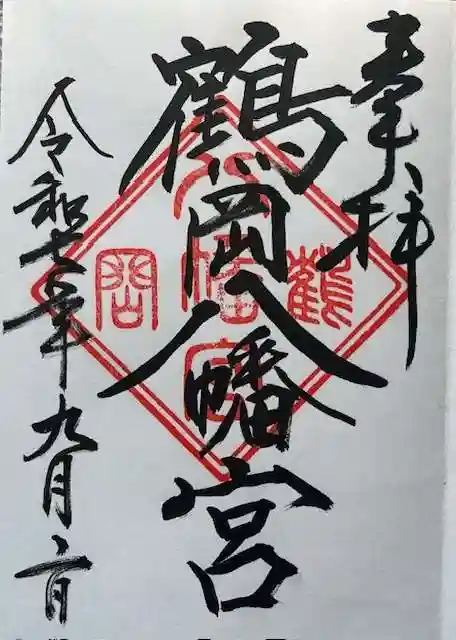 奉拝
鶴岡八幡宮
令和七年九月二日
鶴岡八幡宮